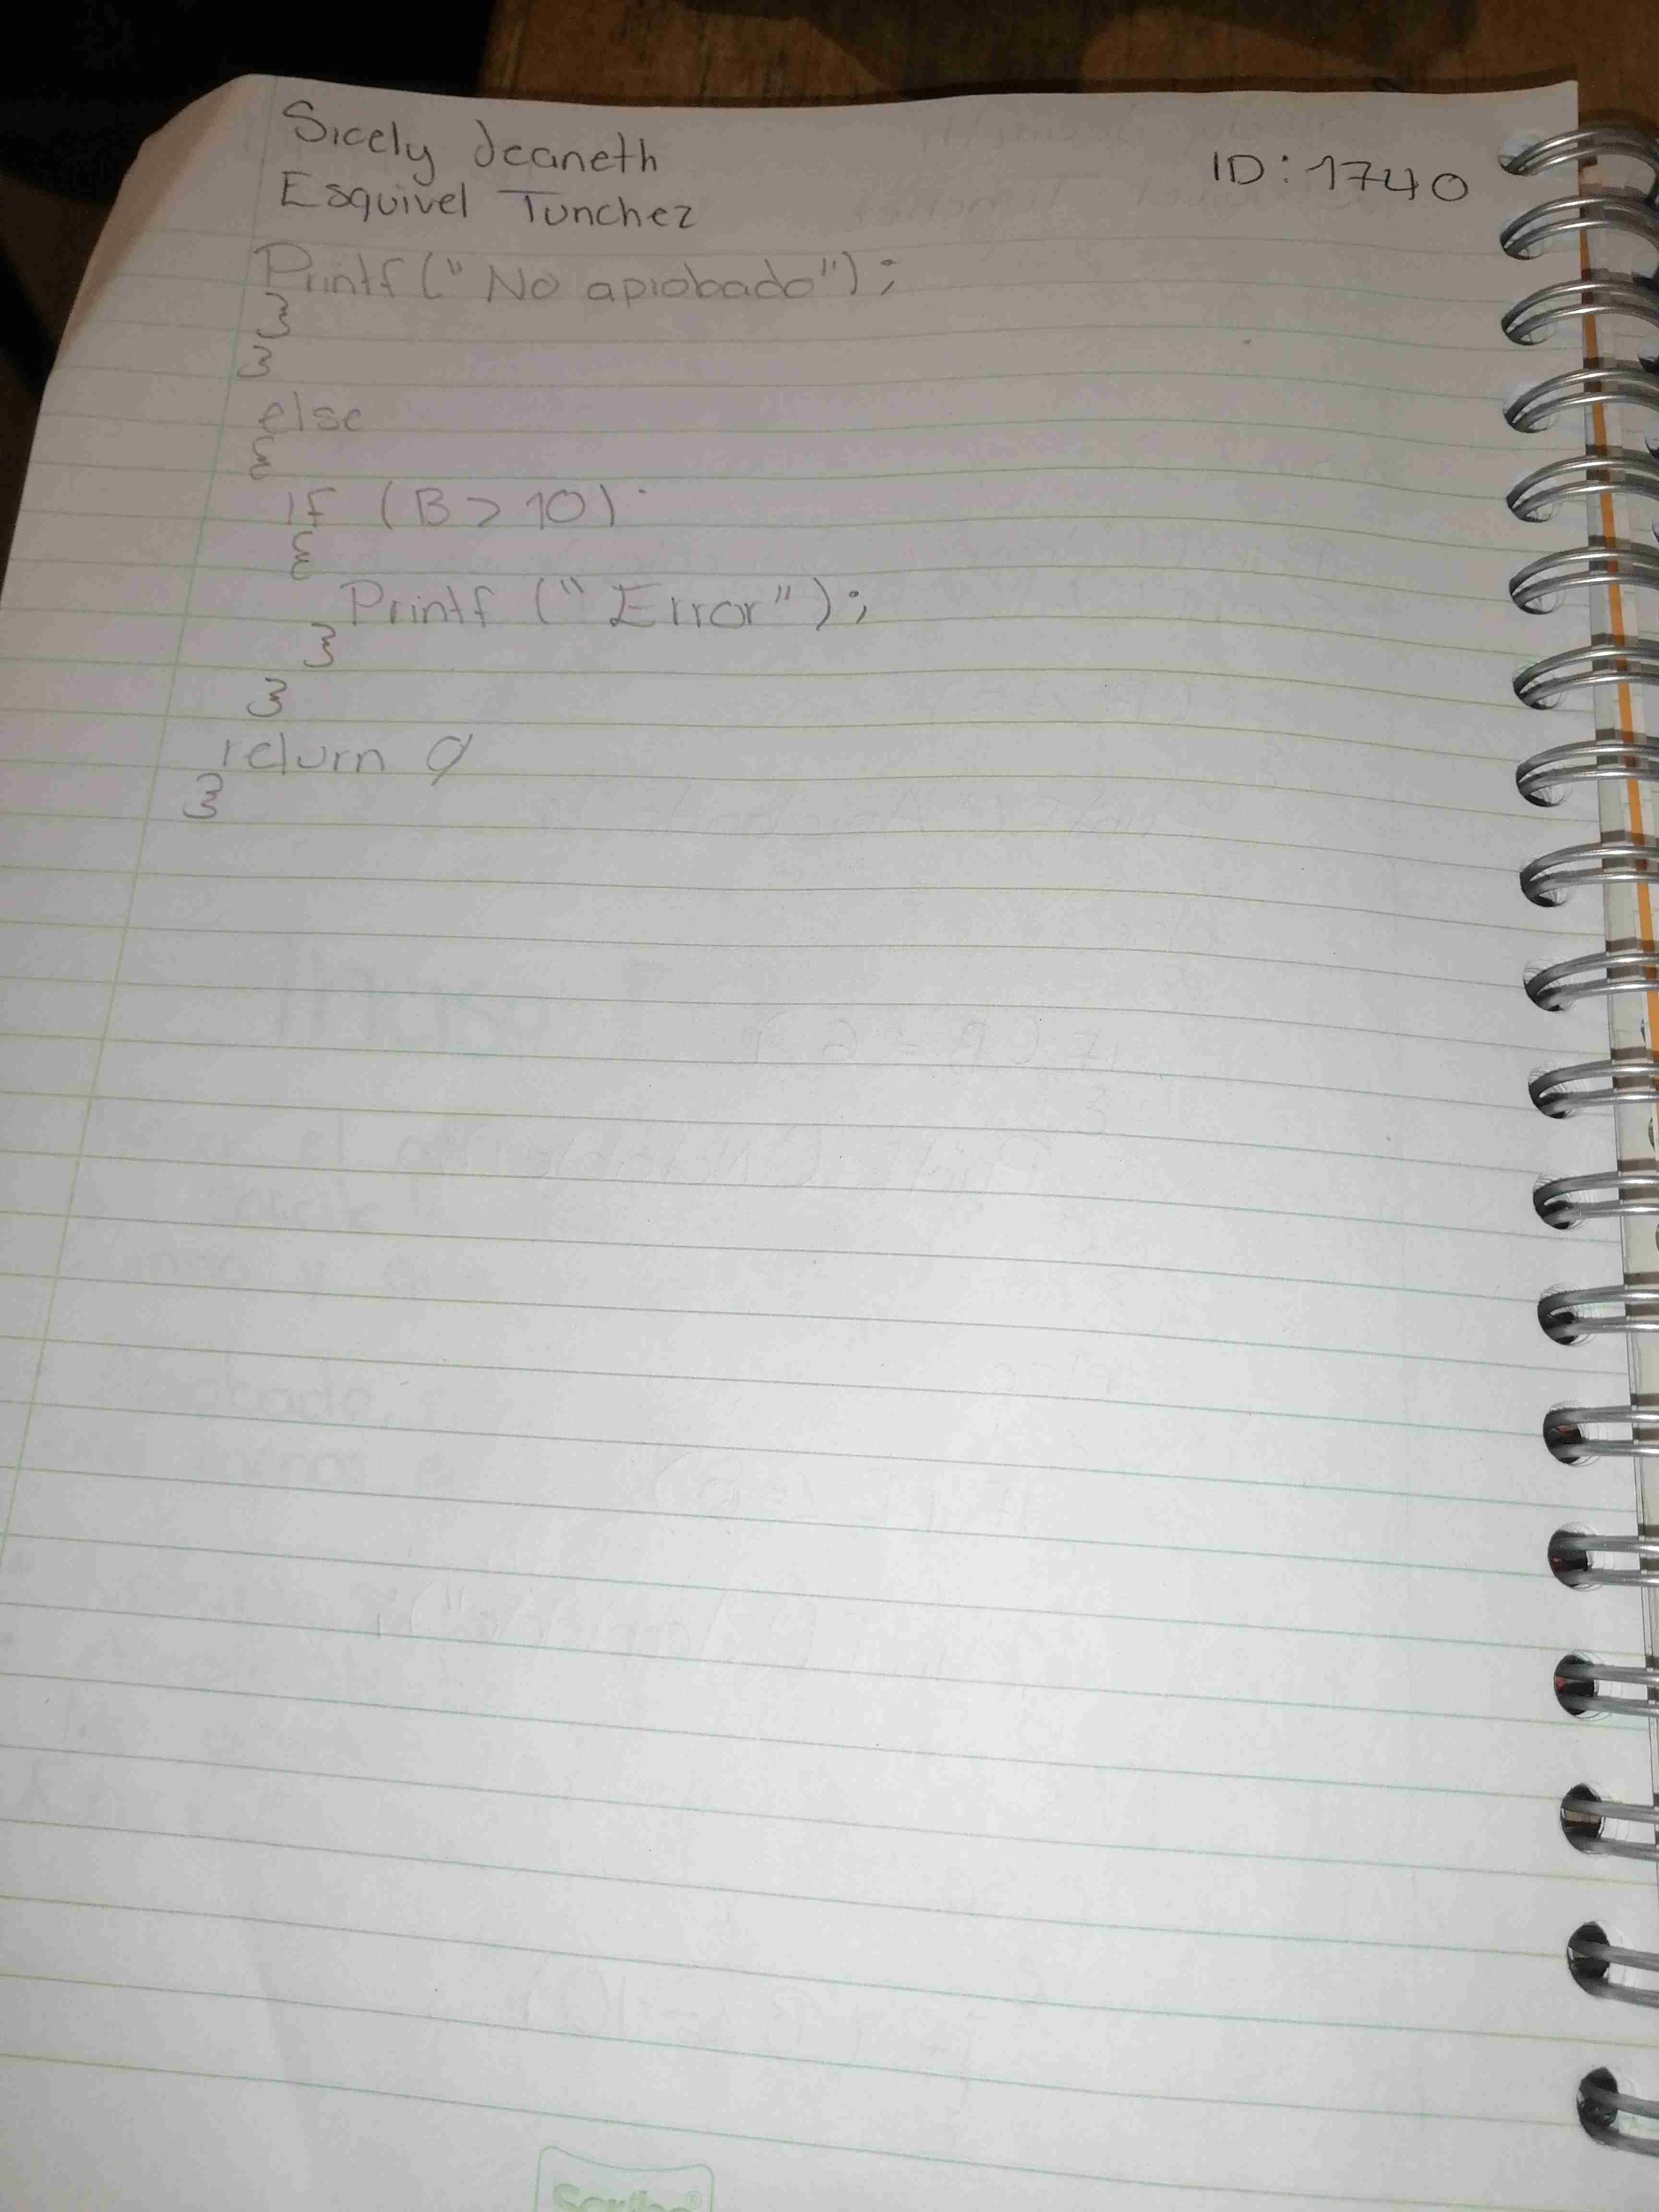 Sicely Jeaneth
Esquivel Tunchez
ID: 1740
Printf(" No aprobado");
}
}
else
{
if (B > 10)
{
Printf (" Error");
}
}
return 0
}
Scribe